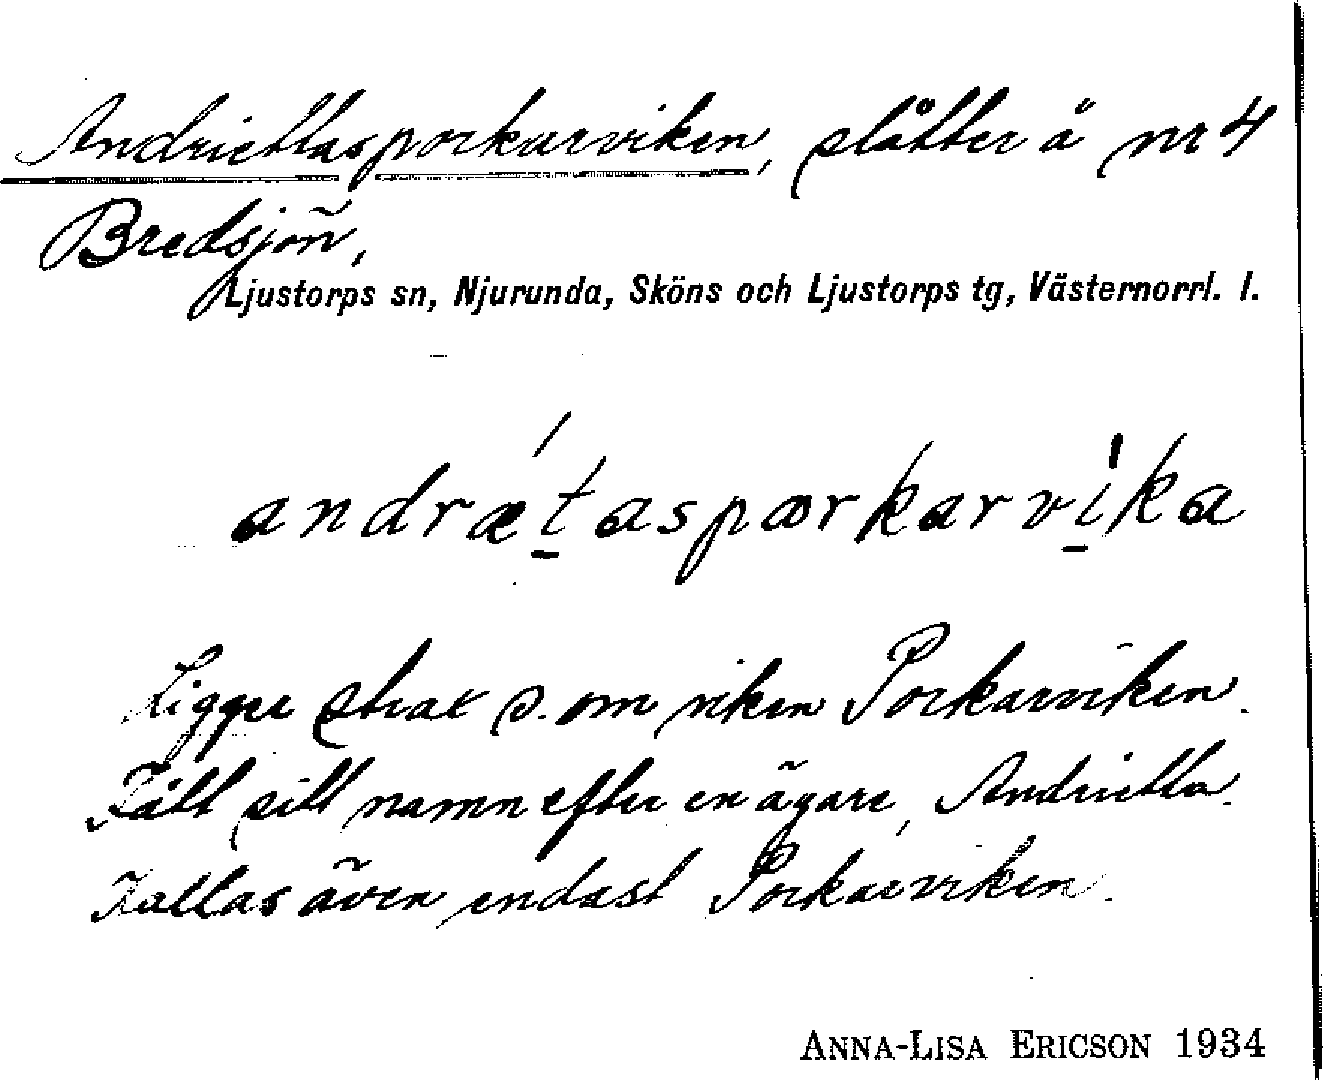 Andriettasporkarviken, slåtter å nr 4
Bredsjön,
Ljustorps sn, Njurunda, Sköns och Ljustorps tg, Västernorrl. l.
andrætaspœrkarvika
Ligger strax s. om viken Porkarviken.
Fått sitt namn efter en ägare, Andrietta.
Kallas även endast Porkarviken.
ANNA-LISA ERICSON 1934